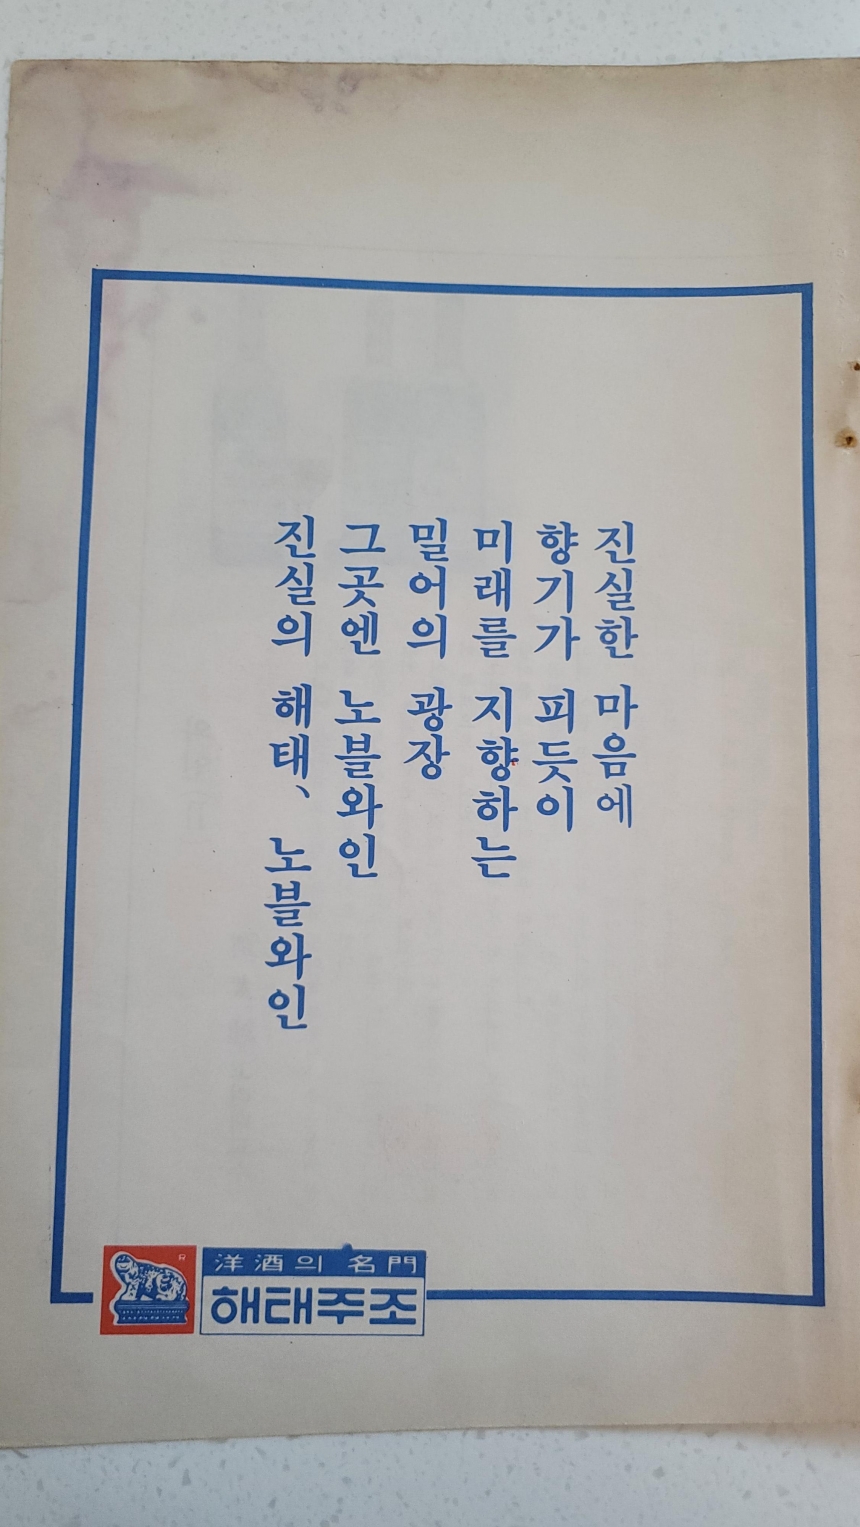 진실한 마음에
향기가 피듯이
미래를 지향하는
밀어의 광장
그곳엔 노블와인
진실의 해태、 노블와인
R
洋酒의 名門
해태주조